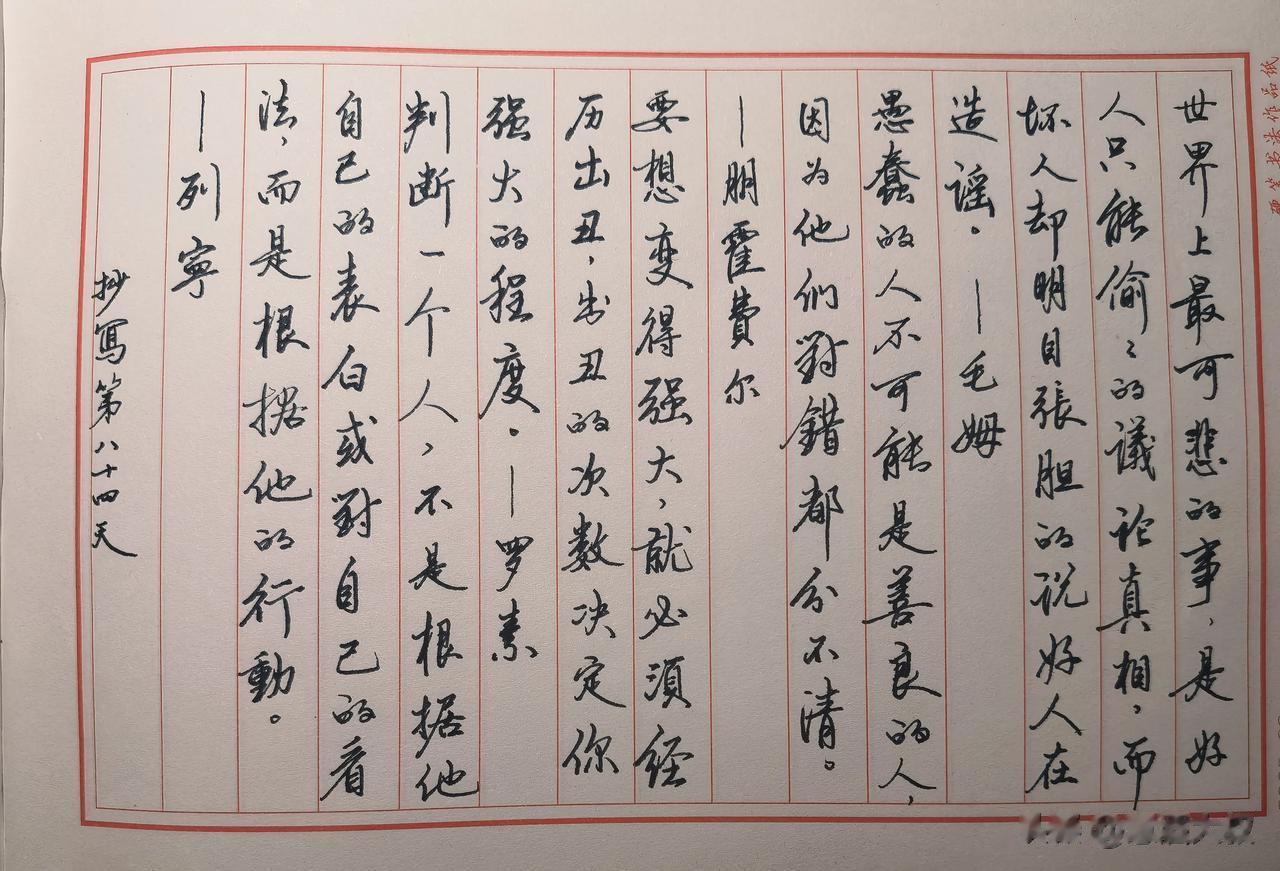 世界上最可悲的事，是好
人只能偷〻的議论真相，而
坏人却明目張胆的说好人在
造谣。—毛姆
愚蠢的人不可能是善良的人，
因为他们對錯都分不清。
—朋霍費尔
要想变得强大，就必須经
历出丑，出丑的次数决定你
强大的程度。—罗素
判断一个人，不是根据他
自己的表白或對自己的看
法，而是根据他的行動。
—列寧
抄寫第八十四天
硬笔书法作品纸